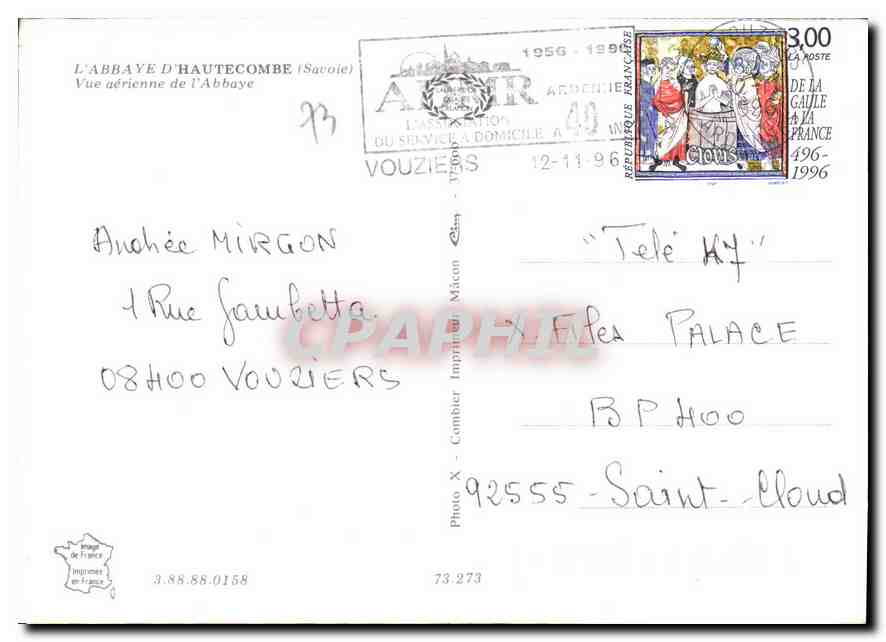 L'ABBAYE D'HAUTECOMBE (Savoie)
Vue aérienne de l'Abbaye
73
1956 - 1996
ADMR
ARDENNES
L'ASSOCIATION
DU SERVICE A DOMICILE A 40 ANS
VOUZIERS 12-11-96
RÉPUBLIQUE FRANÇAISE
3,00
LA POSTE
DE LA
GAULE
A LA
FRANCE
496-
1996
Clovis
Andrée MIRGON
1 Rue Gambetta
08400 VOUZIERS
"Télé K7"
X Files PALACE
BP 400
92555 - Saint-Cloud
Photo X - Combier Imprimeur Mâcon Cim
CPAPHIL
Image
de France
Imprimée
en France
3.88.88.0158
73.273